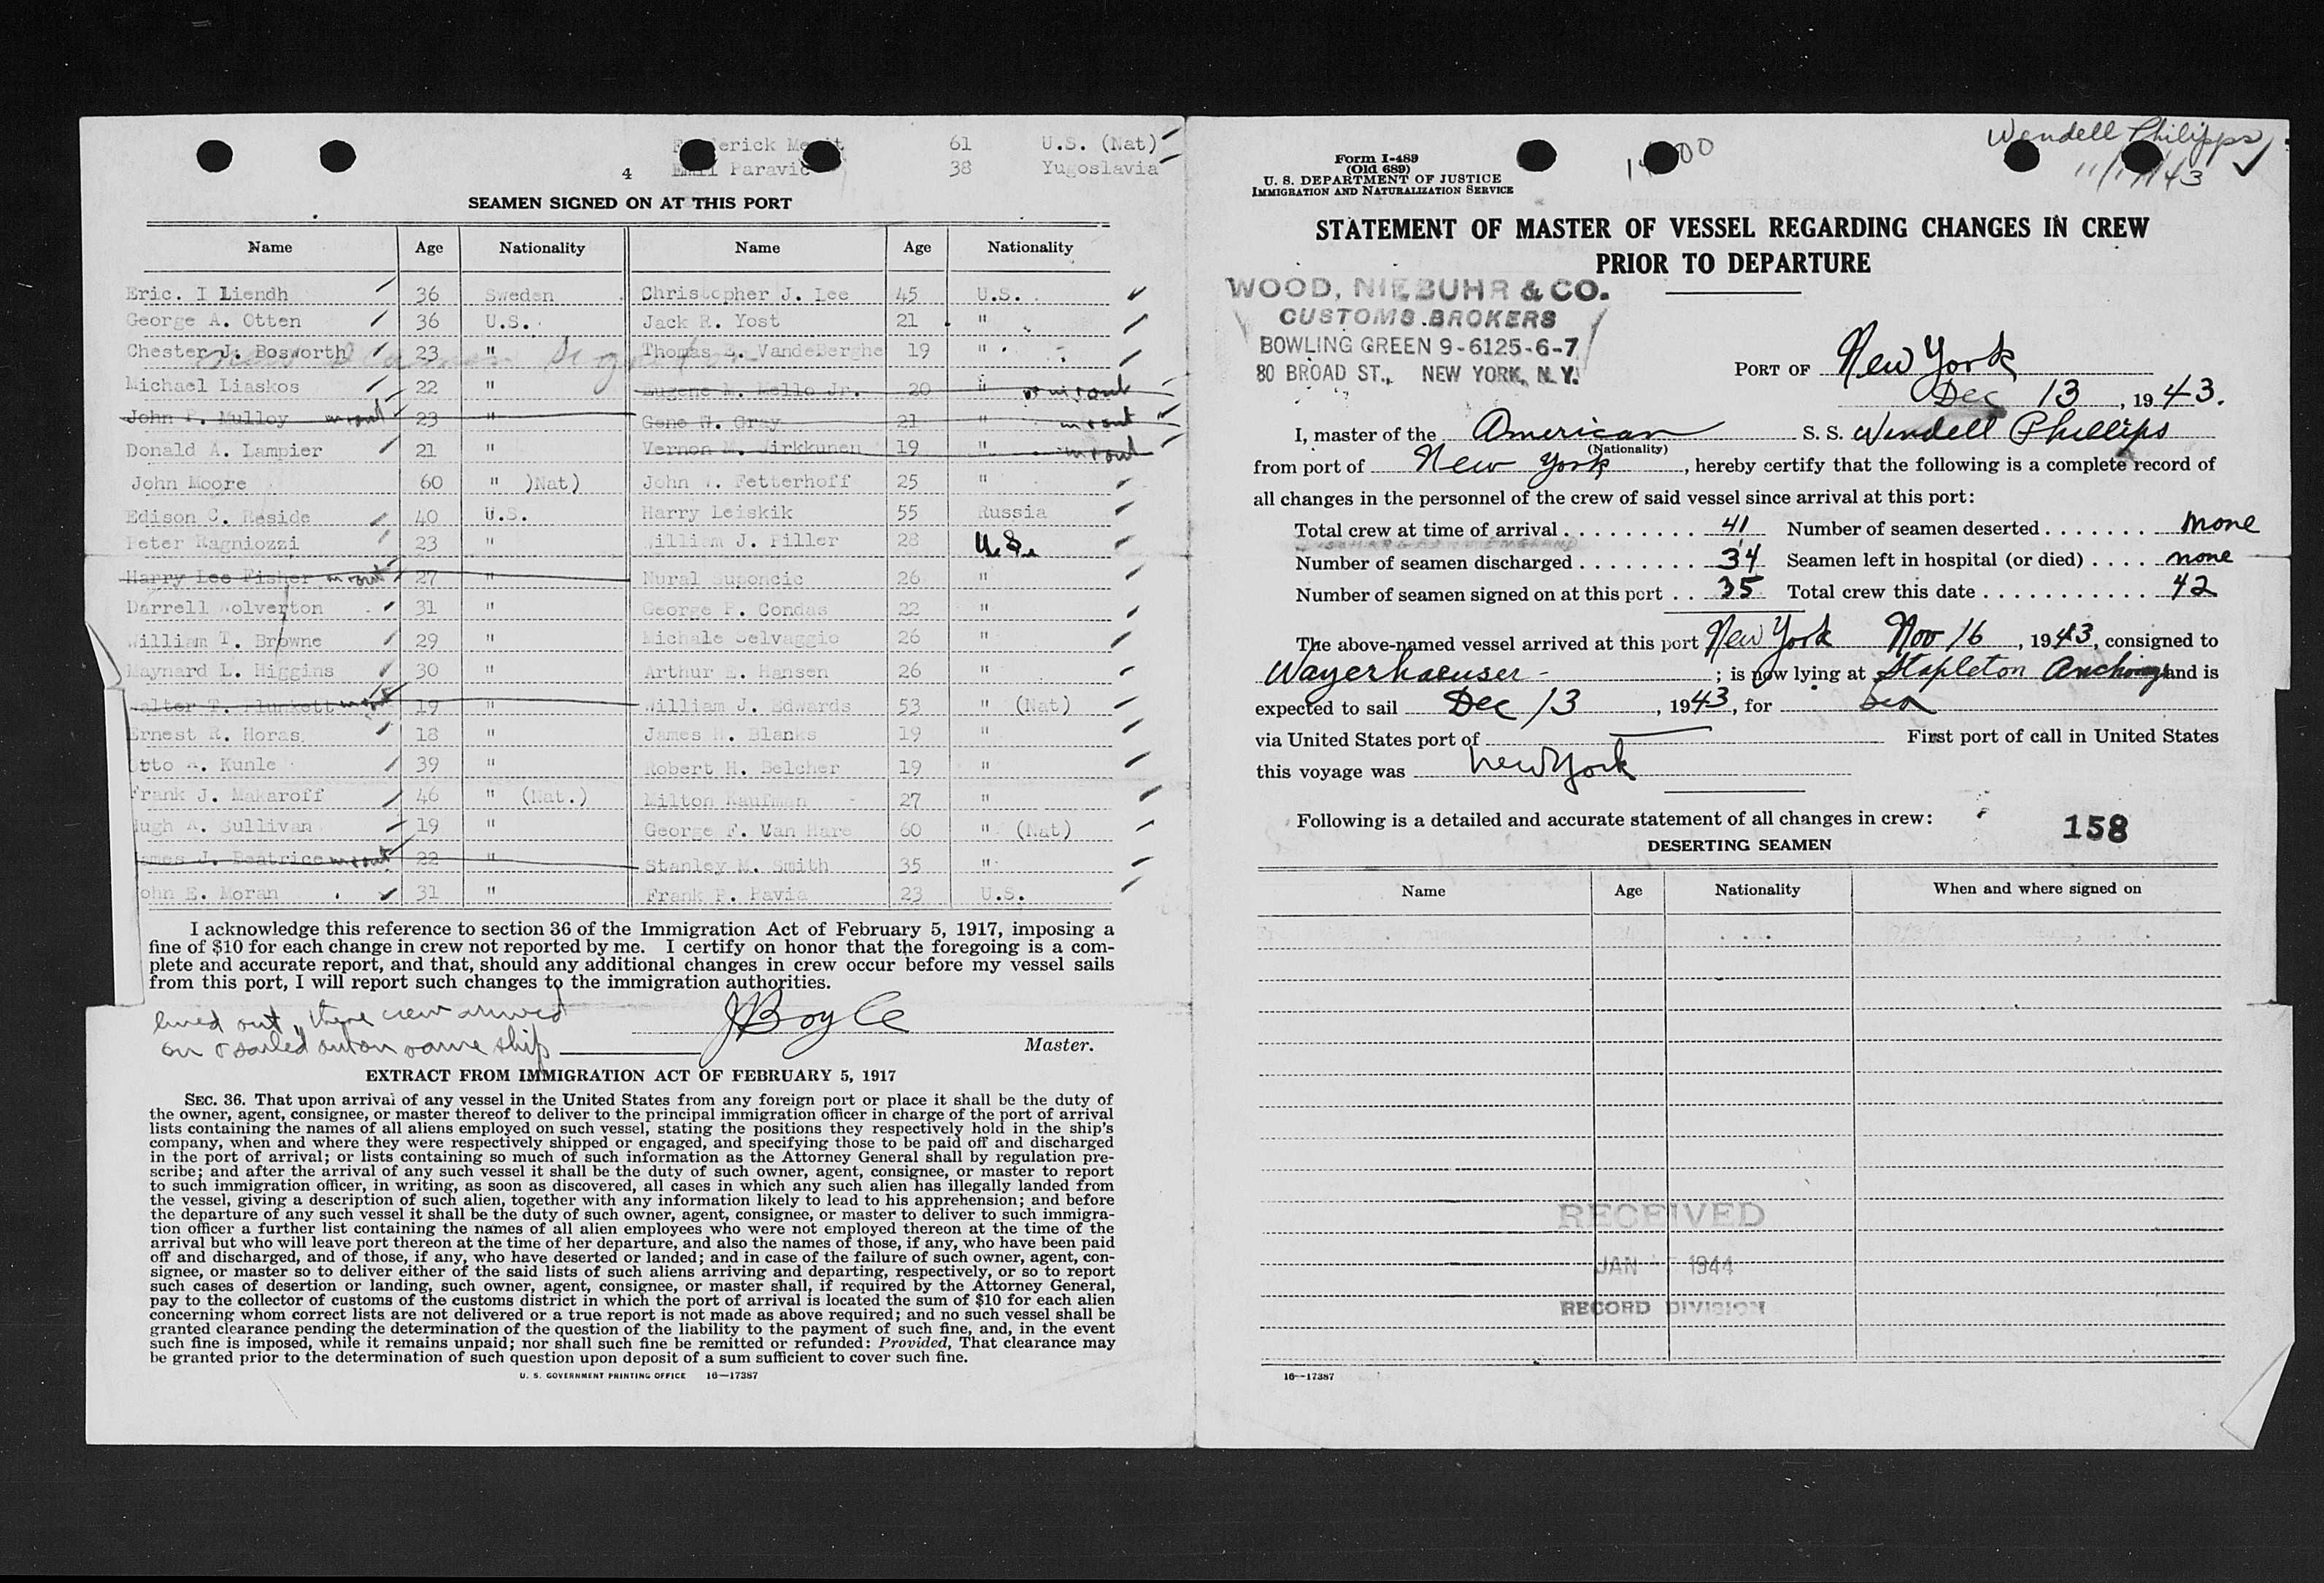 erick Me t 61 U.S. (Nat)
4 Paravic 38 Yugoslavia
SEAMEN SIGNED ON AT THIS PORT
Name Age Nationality Name Age Nationality
Eric. I Liendh 36 Sweden Christopher J. Lee 45 U.S.
George A. Otten 36 U.S. Jack R. Yost 21 "
Chester J. Bosworth 23 " Thomas E. VandeBerghe 19 "
Michael Liaskos 22 " Eugene M. Mello Jr. 20 "
John P. Mulloy 23 " Gene W. Gray 21 "
Donald A. Lampier 21 " Vernon M. Wirkkunen 19 "
John Moore 60 " )Nat) John W. Fetterhoff 25 "
Edison C. Reside 40 U.S. Harry Leiskik 55 Russia
Peter Ragniozzi 23 " William J. Piller 28 U.S.
Harry Lee Fisher 27 " Nural Suponcic 26 "
Darrell Wolverton 31 " George P. Condas 22 "
William T. Browne 29 " Michale Selvaggio 26 "
Maynard L. Higgins 30 " Arthur E. Hansen 26 "
Walter T. Plunkett 19 " William J. Edwards 53 " (Nat)
Ernest R. Horas. 18 " James H. Blanks 19 "
Otto A. Kunle 39 " Robert H. Belcher 19 "
Frank J. Makaroff 46 " (Nat.) Milton Kaufman 27 "
Hugh A. Sullivan 19 " George F. Van Hare 60 " (Nat)
James J. Beatrice 22 " Stanley M. Smith 35 "
John E. Moran 31 " Frank P. Pavia 23 U.S.
I acknowledge this reference to section 36 of the Immigration Act of February 5, 1917, imposing a
fine of $10 for each change in crew not reported by me. I certify on honor that the foregoing is a com-
plete and accurate report, and that, should any additional changes in crew occur before my vessel sails
from this port, I will report such changes to the immigration authorities.
lined out, these crew arrived
on & sailed out on same ship
J Boyle
Master.
EXTRACT FROM IMMIGRATION ACT OF FEBRUARY 5, 1917
SEC. 36. That upon arrival of any vessel in the United States from any foreign port or place it shall be the duty of
the owner, agent, consignee, or master thereof to deliver to the principal immigration officer in charge of the port of arrival
lists containing the names of all aliens employed on such vessel, stating the positions they respectively hold in the ship's
company, when and where they were respectively shipped or engaged, and specifying those to be paid off and discharged
in the port of arrival; or lists containing so much of such information as the Attorney General shall by regulation pre-
scribe; and after the arrival of any such vessel it shall be the duty of such owner, agent, consignee, or master to report
to such immigration officer, in writing, as soon as discovered, all cases in which any such alien has illegally landed from
the vessel, giving a description of such alien, together with any information likely to lead to his apprehension; and before
the departure of any such vessel it shall be the duty of such owner, agent, consignee, or master to deliver to such immigra-
tion officer a further list containing the names of all alien employees who were not employed thereon at the time of the
arrival but who will leave port thereon at the time of her departure, and also the names of those, if any, who have been paid
off and discharged, and of those, if any, who have deserted or landed; and in case of the failure of such owner, agent, con-
signee, or master so to deliver either of the said lists of such aliens arriving and departing, respectively, or so to report
such cases of desertion or landing, such owner, agent, consignee, or master shall, if required by the Attorney General,
pay to the collector of customs of the customs district in which the port of arrival is located the sum of $10 for each alien
concerning whom correct lists are not delivered or a true report is not made as above required; and no such vessel shall be
granted clearance pending the determination of the question of the liability to the payment of such fine, and, in the event
such fine is imposed, while it remains unpaid; nor shall such fine be remitted or refunded: Provided, That clearance may
be granted prior to the determination of such question upon deposit of a sum sufficient to cover such fine.
U. S. GOVERNMENT PRINTING OFFICE 16—17387
Form I-489
(Old 689)
U. S. DEPARTMENT OF JUSTICE
IMMIGRATION AND NATURALIZATION SERVICE
Wendell Philipps
STATEMENT OF MASTER OF VESSEL REGARDING CHANGES IN CREW
PRIOR TO DEPARTURE
WOOD, NIEBUHR & CO.
CUSTOMS BROKERS
BOWLING GREEN 9-6125-6-7
80 BROAD ST., NEW YORK, N.Y.
PORT OF New York
Dec 13, 1943.
I, master of the American S. S. Wendell Phillips
(Nationality)
from port of New York, hereby certify that the following is a complete record of
all changes in the personnel of the crew of said vessel since arrival at this port:
Total crew at time of arrival 41 Number of seamen deserted none
Number of seamen discharged 34 Seamen left in hospital (or died) none
Number of seamen signed on at this port 35 Total crew this date 42
The above-named vessel arrived at this port New York Nov 16, 1943, consigned to
Wayerhaeuser - ; is now lying at Stapleton Anchorage and is
expected to sail Dec 13, 1943, for Sea
via United States port of First port of call in United States
this voyage was New York
Following is a detailed and accurate statement of all changes in crew:
158
DESERTING SEAMEN
Name Age Nationality When and where signed on
RECEIVED
JAN 1944
RECORD DIVISION
16—17387